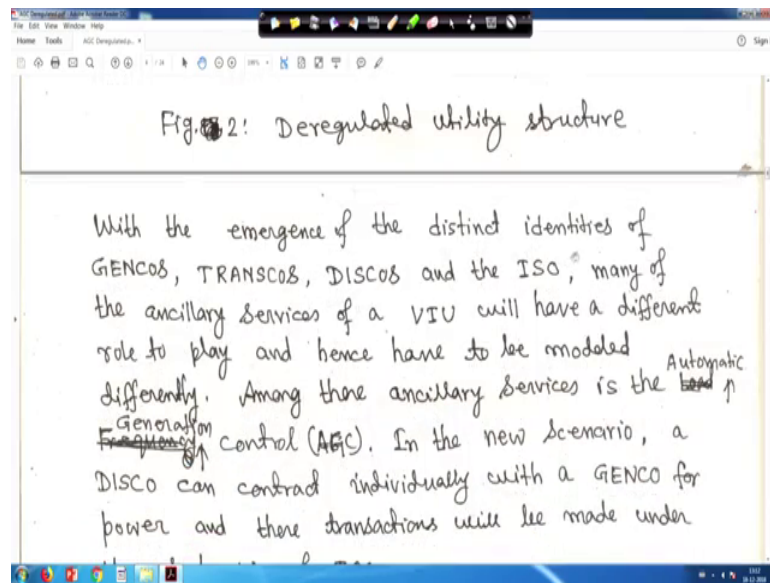 AGC Deregulated.pdf - Adobe Acrobat Reader DC
File Edit View Window Help
Home Tools AGC Deregulated.p... ×
Sign
Fig. 2: Deregulated utility structure
With the emergence of the distinct identities of
GENCOS, TRANSCOS, DISCOS and the ISO, many of
the ancillary services of a VIU will have a different
role to play and hence have to be modeled
differently. Among these ancillary services is the Automatic
Generation control (AGC). In the new scenario, a
DISCO can contract individually with a GENCO for
power and these transactions will be made under